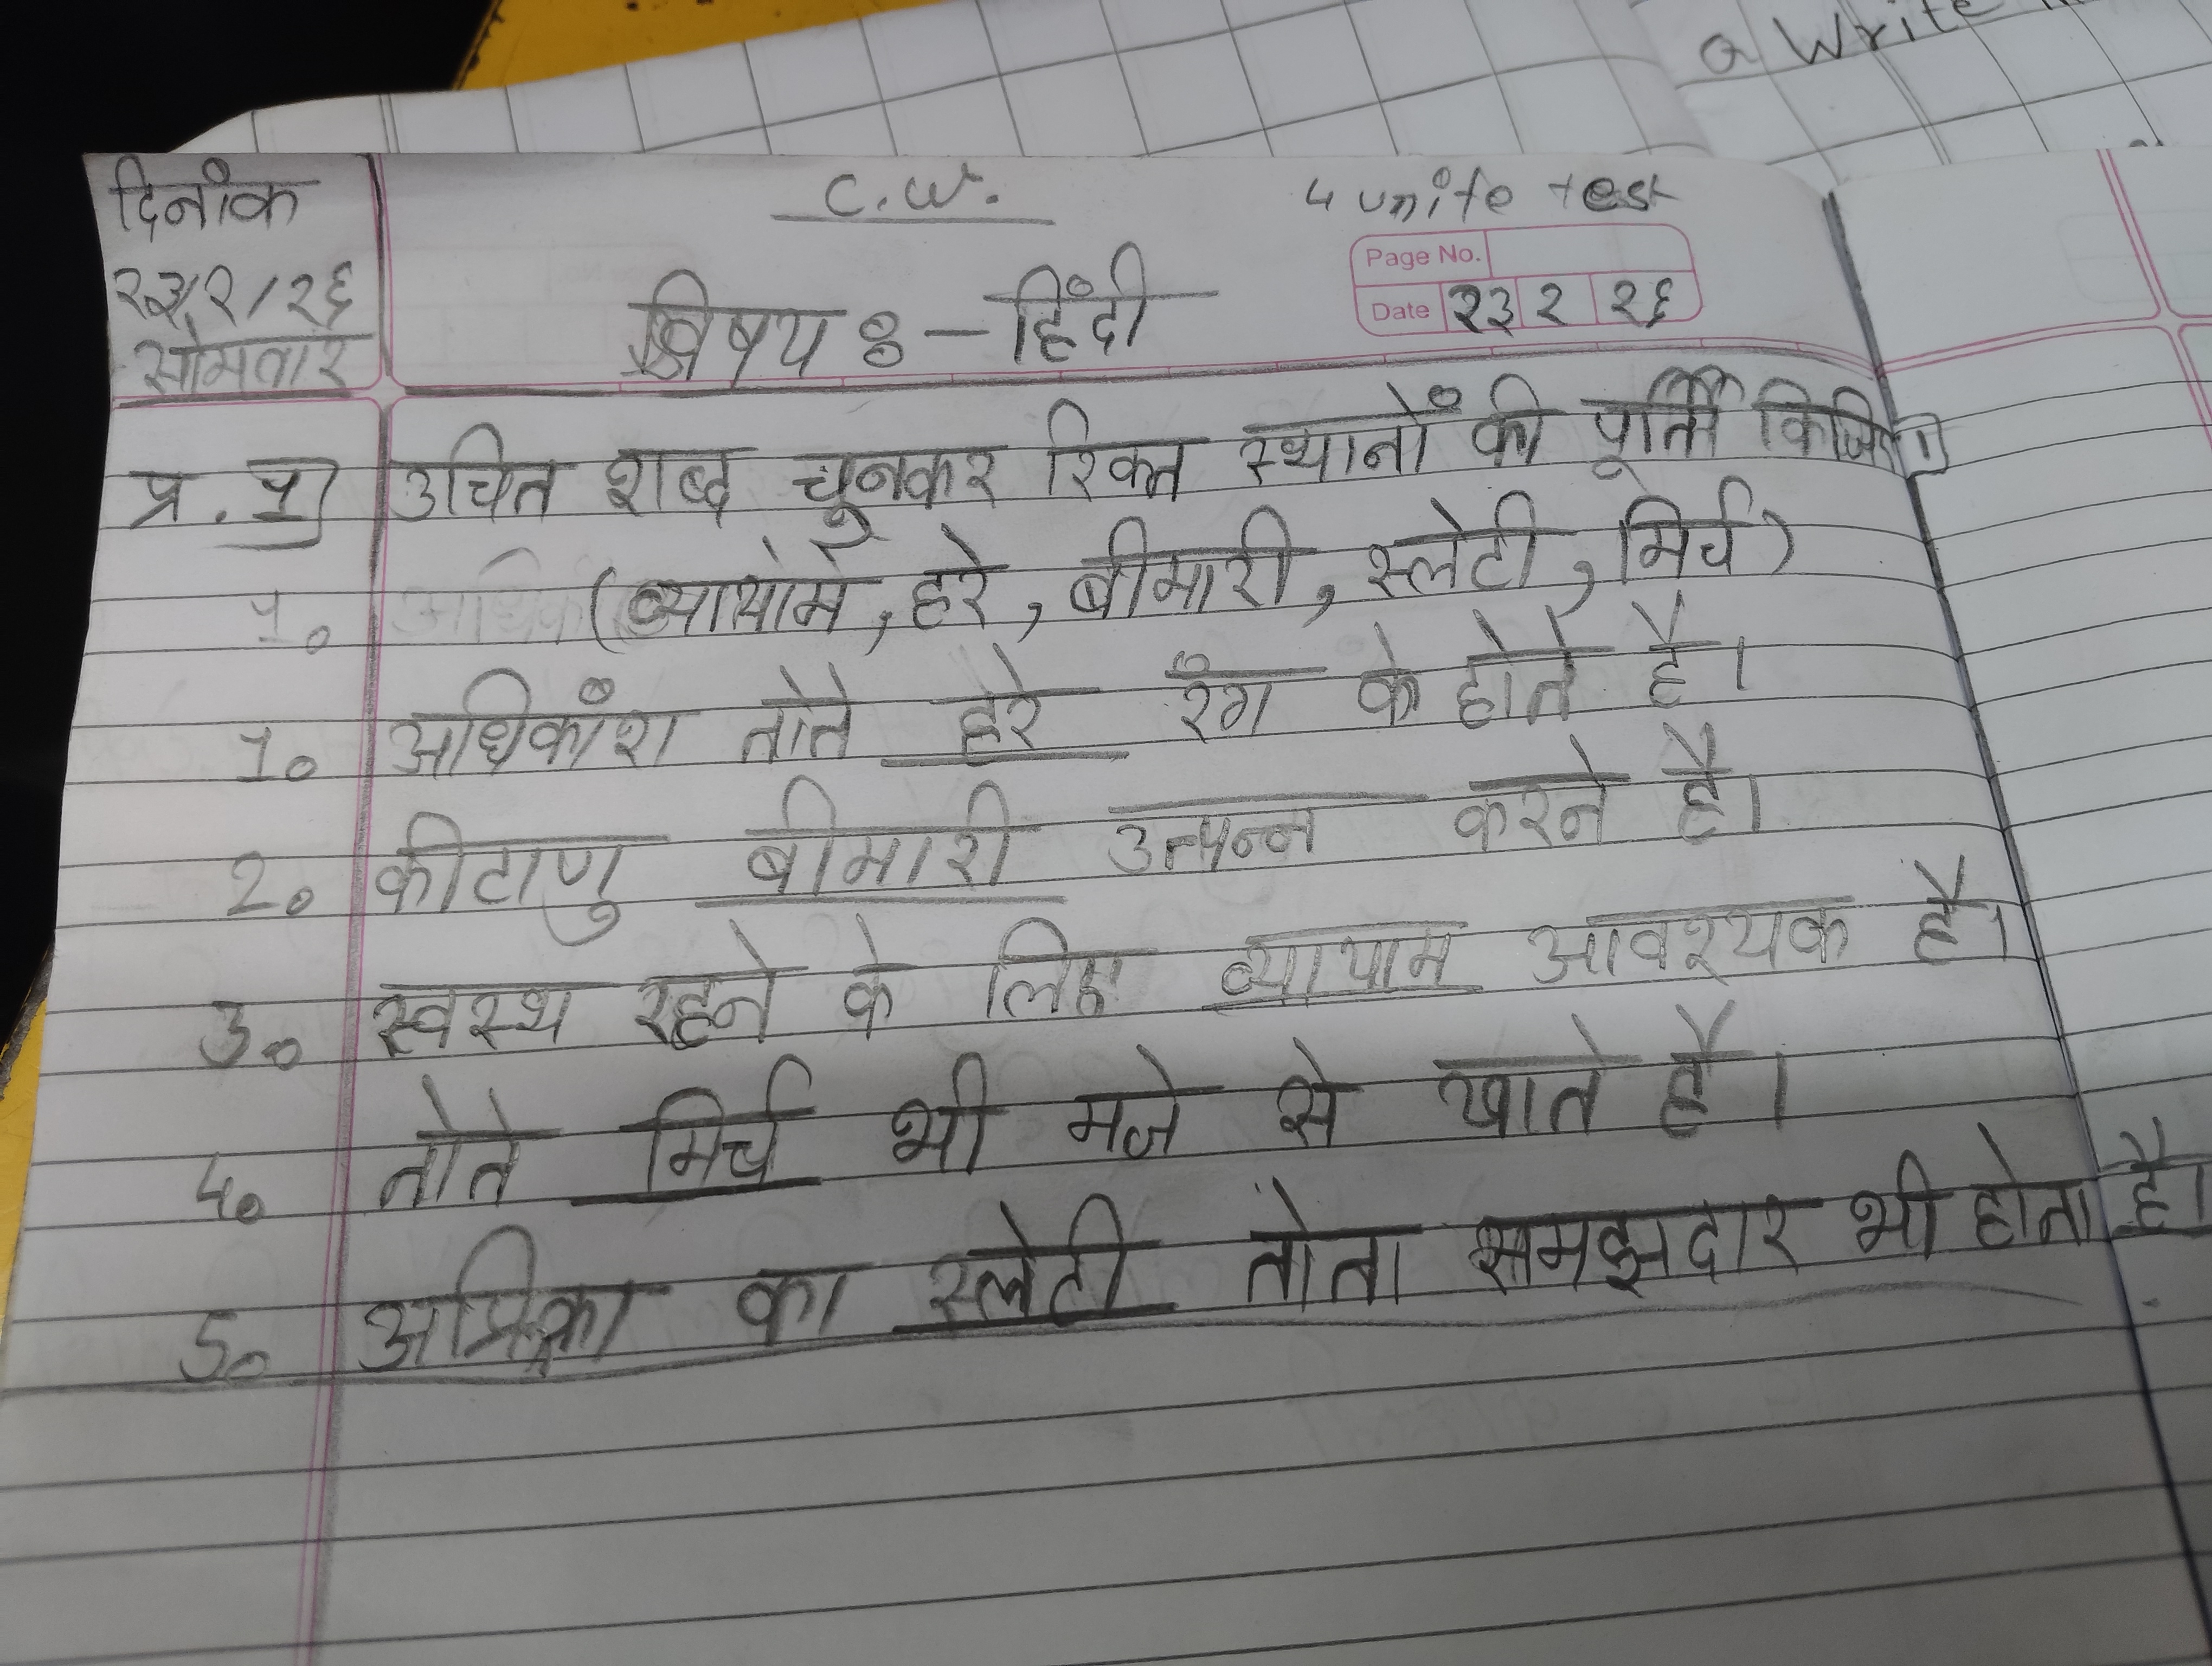 a Write
दिनांक C.W. 4 unite test
Page No.
२३/२/२६ विषय :- हिंदी Date २३ २ २६
सोमवार
प्र. १) उचित शब्द चूनकर रिक्त स्थानों की पूर्ति किजिए।
1. (व्यायाम, हरे, बीमारी, स्लेटी, मिर्च)
1. अधिकांश तोते हरे रंग के होते है।
2. कीटाणु बीमारी उत्पन्न करने है।
3. स्वस्थ रहने के लिए व्यायाम आवश्यक है।
4. तोते मिर्च भी मजे से खाते है।
5. अफ्रिका का स्लेटी तोता समझदार भी होता है।